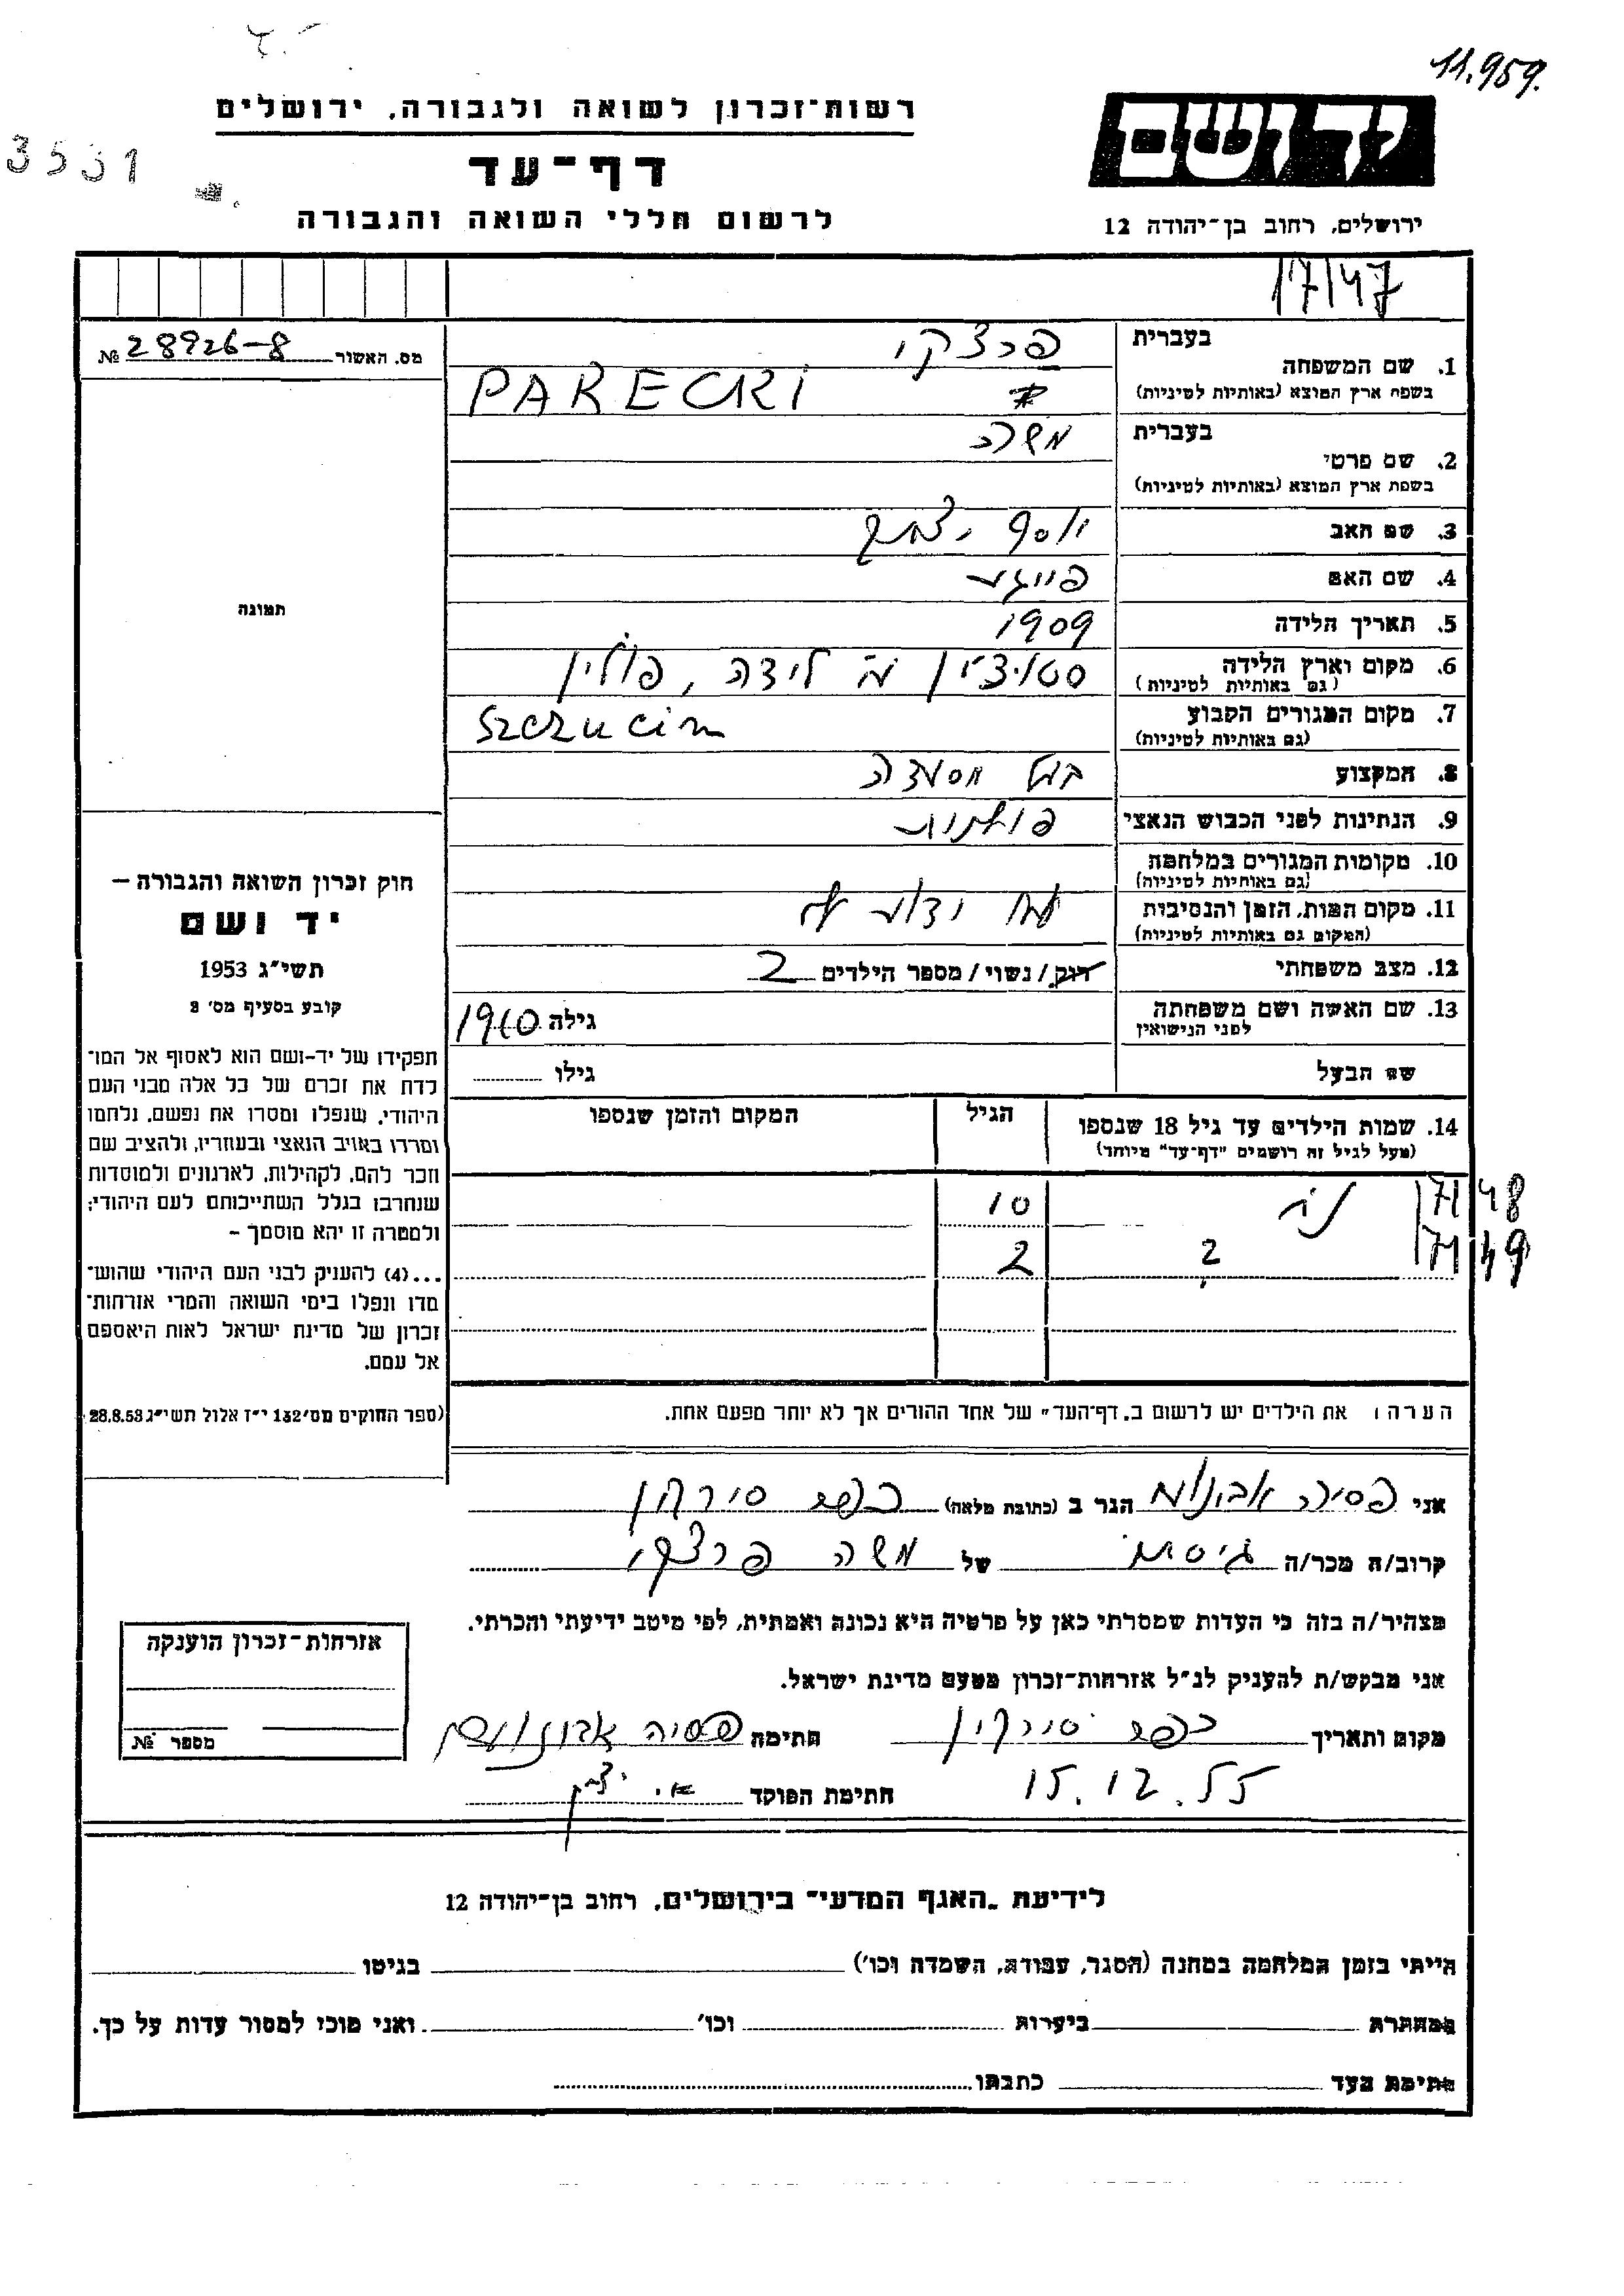 11.959.
רשות-זכרון לשואה ולגבורה, ירושלים
יד ושם
3531
דף-עד
לרשום חללי השואה והגבורה
ירושלים, רחוב בן-יהודה 12
17/47
מס. האשור № 28926-8
בעברית פרצקי
1. שם המשפחה
בשפת ארץ המוצא (באותיות לטיניות) PARECKI
בעברית משה
2. שם פרטי
בשפת ארץ המוצא (באותיות לטיניות)
3. שם האב יוסף יצחק
4. שם האם פייגע
5. תאריך הלידה 1909
6. מקום וארץ הלידה לידה, פולין
(גם באותיות לטיניות)
7. מקום המגורים הקבוע Szczucin
(גם באותיות לטיניות)
8. המקצוע בעל מסעדה
9. הנתינות לפני הכבוש הנאצי פולנית
10. מקומות המגורים במלחמה
(גם באותיות לטיניות)
11. מקום המות, הזמן והנסיבות לא ידוע לי
(המקום גם באותיות לטיניות)
12. מצב משפחתי רוק/ נשוי/ מספר הילדים 2
13. שם האשה ושם משפחתה גילה 1910
לפני הנישואין
שם הבעל גילו
תמונה
חוק זכרון השואה והגבורה –
יד ושם
תשי"ג 1953
קובע בסעיף מס' 2
תפקידו של יד-ושם הוא לאסוף אל המו-
לדת את זכרם של כל אלה מבני העם
היהודי, שנפלו ומסרו את נפשם, נלחמו
ומרדו באויב הנאצי ובעוזריו, ולהציב שם
וזכר להם, לקהילות, לארגונים ולמוסדות
שנחרבו בגלל השתייכותם לעם היהודי;
ולמטרה זו יהא מוסמך –
...(4) להעניק לבני העם היהודי שהוש-
מדו ונפלו בימי השואה והמרי אזרחות-
זכרון של מדינת ישראל לאות היאספם
אל עמם.
(ספר החוקים מס' 132 י"ז אלול תשי"ג 28.8.53
14. שמות הילדים עד גיל 18 שנספו הגיל המקום והזמן שנספו
(מעל לגיל זה רושמים "דף-עד" מיוחד)
10 48
? 2 49
הערה: את הילדים יש לרשום ב"דף-העד" של אחד ההורים אך לא יותר מפעם אחת.
אני פסיה אבונועם הגר ב (כתובת מלאה) כפר סירקין
קרוב/ה מכר/ה גיסה של משה פרצקי
מצהיר/ה בזה כי העדות שמסרתי כאן על פרטיה היא נכונה ואמתית, לפי מיטב ידיעתי והכרתי.
אני מבקש/ת להעניק לנ"ל אזרחות-זכרון מטעם מדינת ישראל.
אזרחות-זכרון הוענקה
מספר №
מקום ותאריך כפר סירקין חתימה פסיה אבונועם
15.12.55 חתימת הפוקד
לידיעת "האגף המדעי" בירושלים, רחוב בן-יהודה 12
הייתי בזמן המלחמה במחנה (הסגר, עבודה, השמדה וכו') בגיטו
במחתרת ביערות וכו' ואני מוכן למסור עדות על כך.
חתימת העד כתבתו